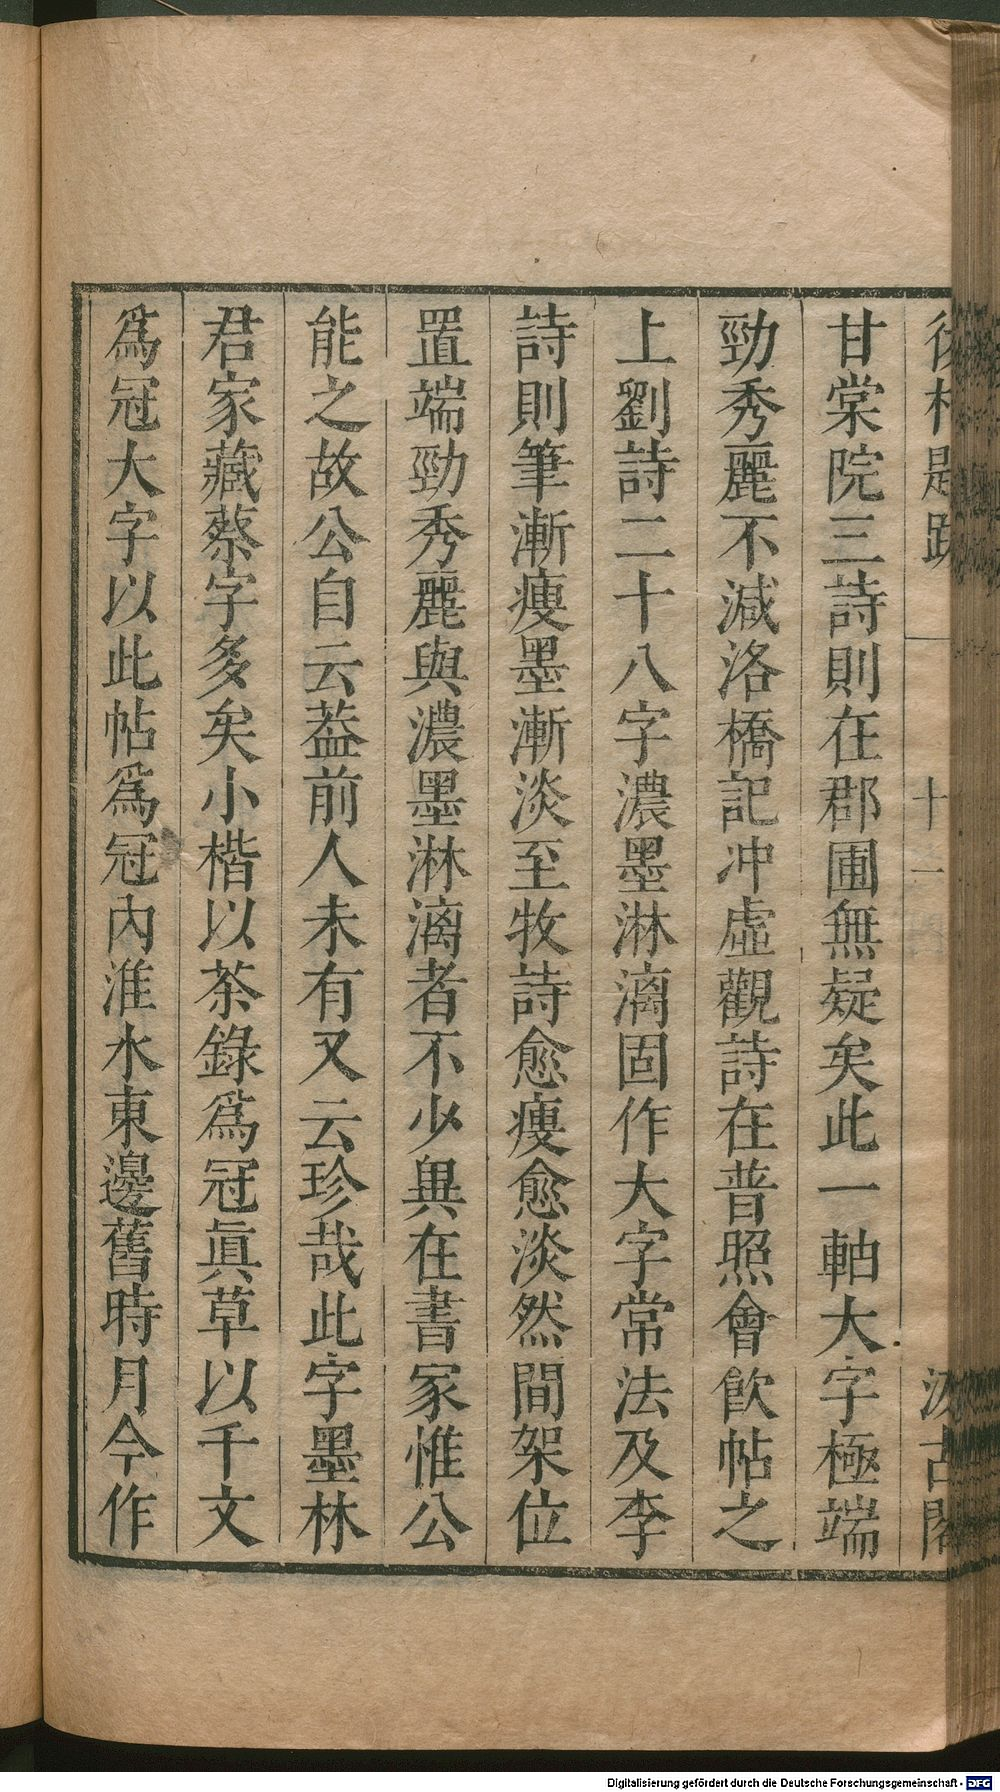 後村題跋 十一 汲古閣
甘棠院三詩則在郡圃無疑矣此一軸大字極端
勁秀麗不減洛橋記冲虛觀詩在普照會飲帖之
上劉詩二十八字濃墨淋漓固作大字常法及李
詩則筆漸瘦墨漸淡至牧詩愈瘦愈淡然間架位
置端勁秀麗與濃墨淋漓者不少異在書家惟公
能之故公自云葢前人未有又云珍哉此字墨林
君家藏蔡字多矣小楷以茶錄爲冠眞草以千文
爲冠大字以此帖爲冠內淮水東邊舊時月今作
Digitalisierung gefördert durch die Deutsche Forschungsgemeinschaft - DFG